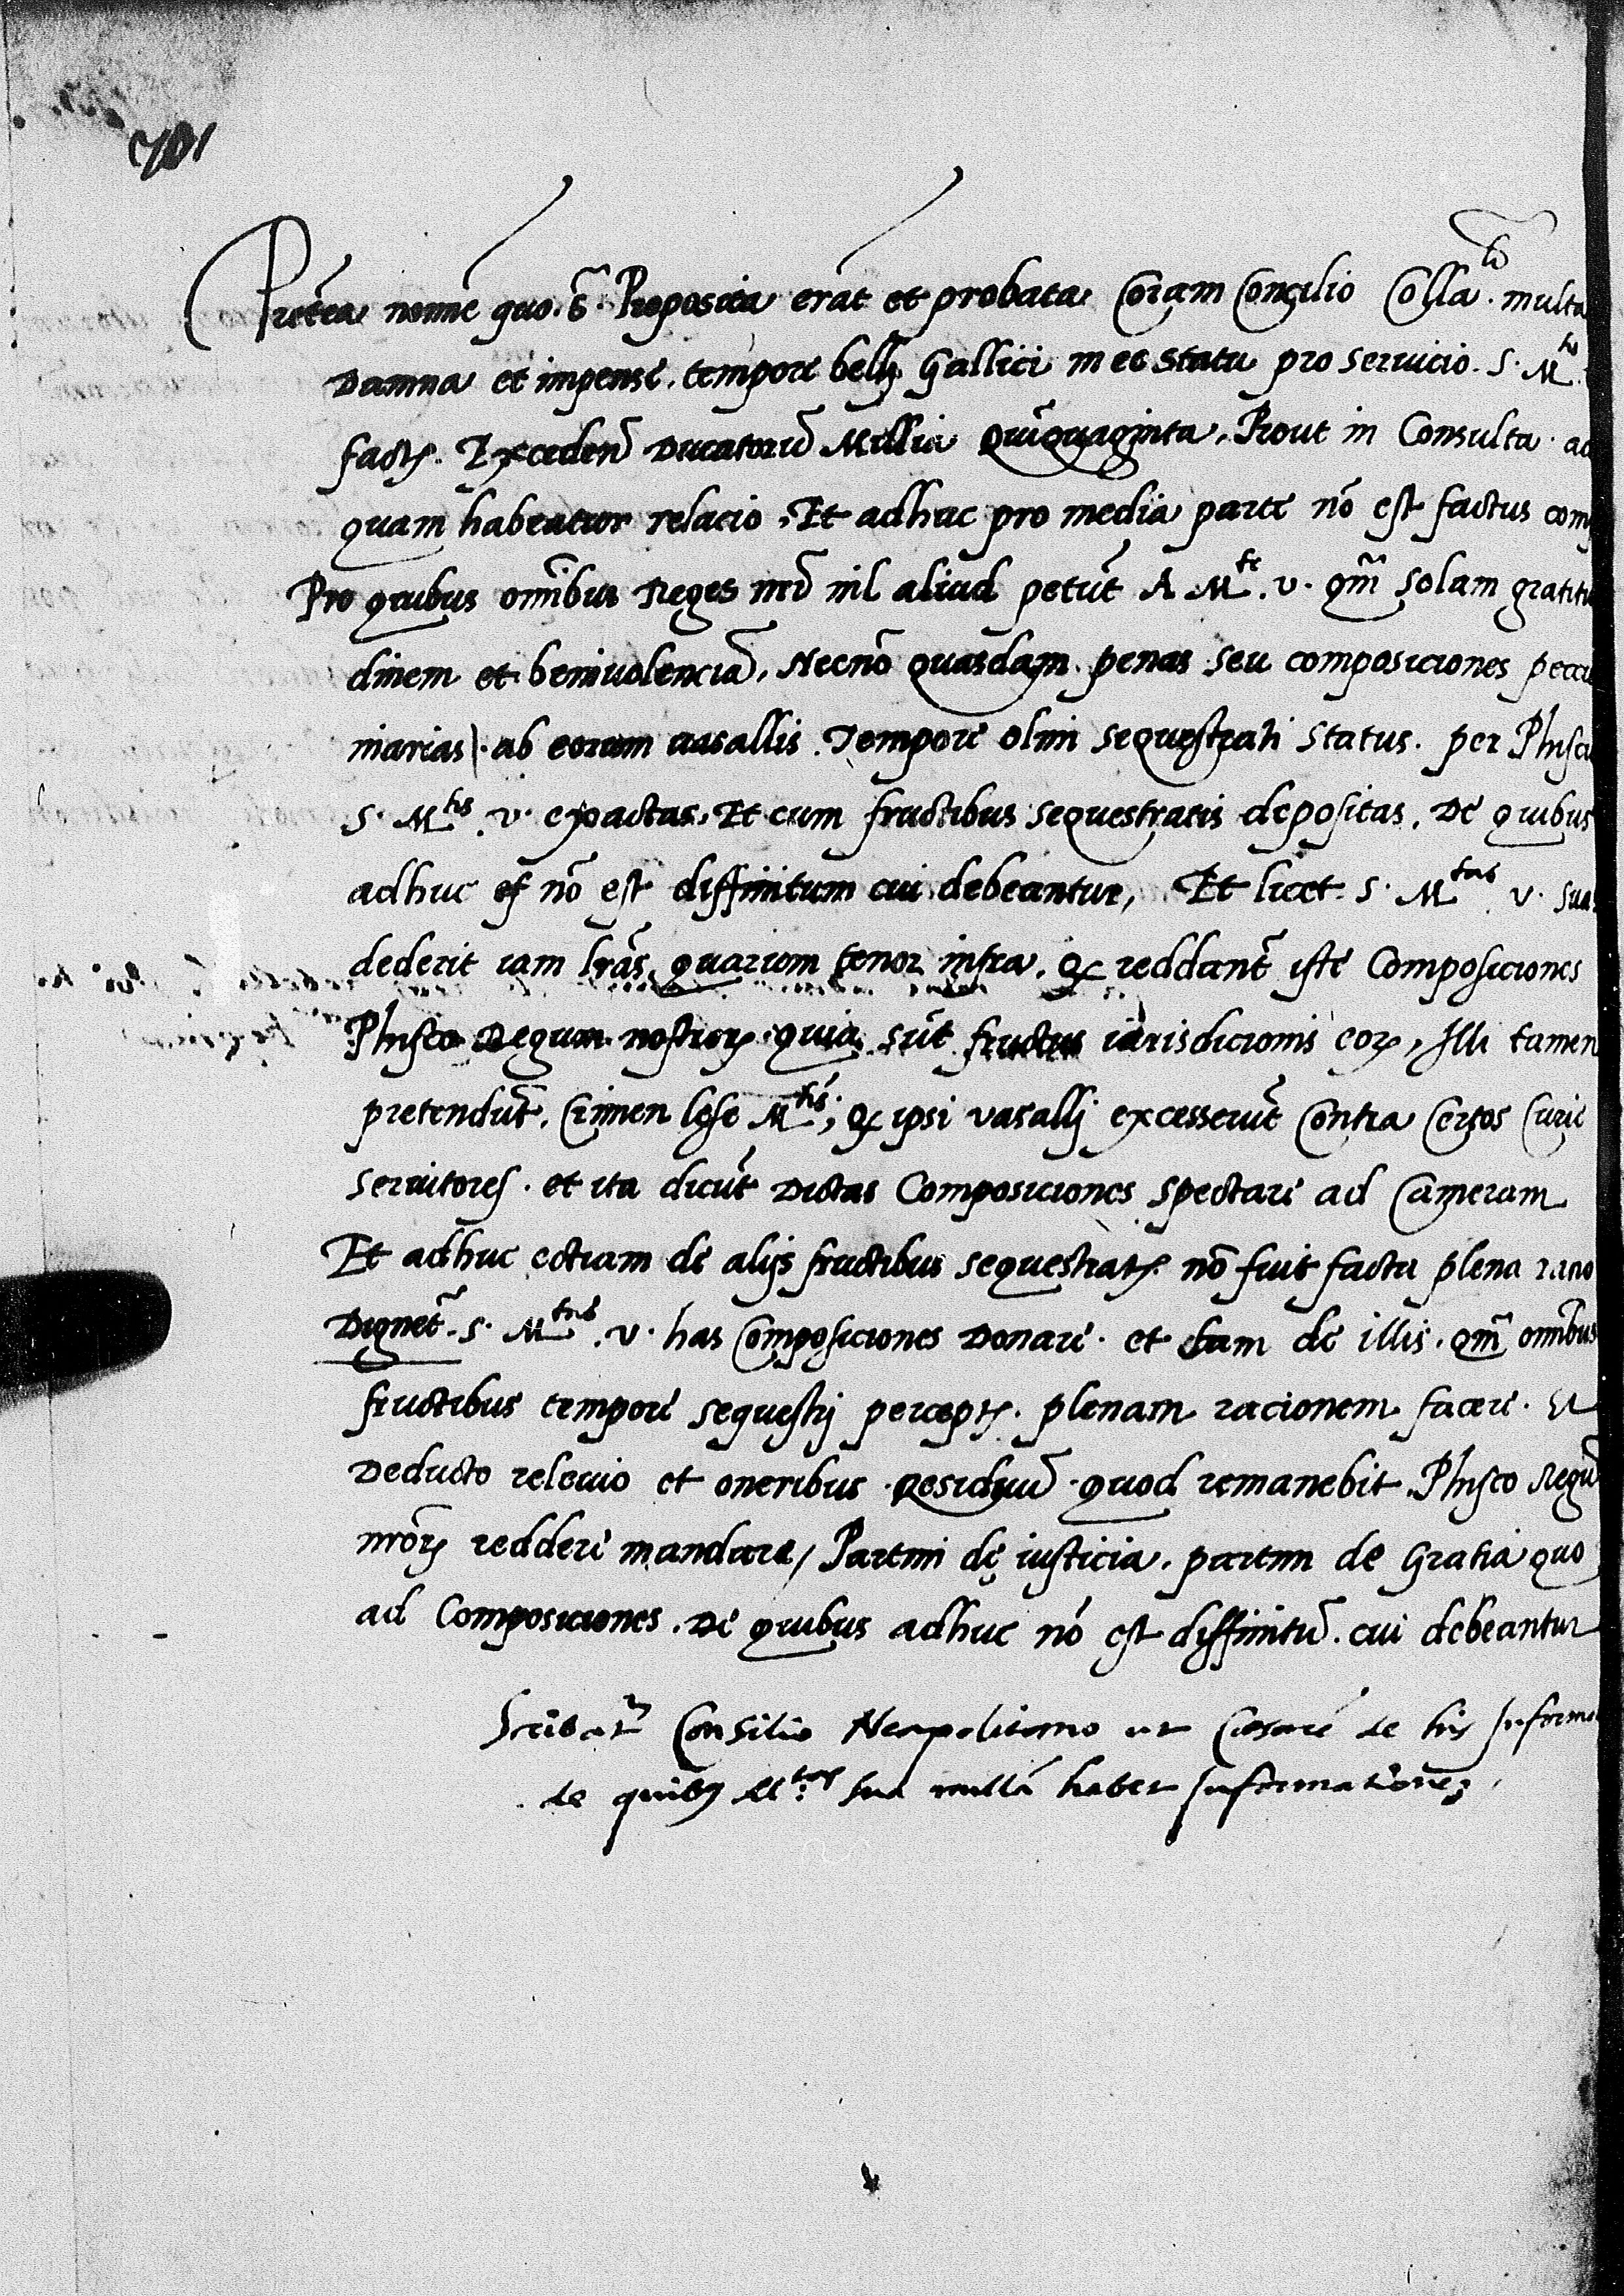 701
Pretea nomine quo. s̃. Proposita erãt et probata Coram Consilio Colla.li multa
Damna et impense. tempore bellj Gallici in eo Statu pro servicio. S. M.tis
factȝ. Excedent̃ Ducatorũ Millia Quĩquaginta. Prout in Consulta. ad
quam habeatur relacio. Et adhuc pro media parte nõ est factus comp
Pro quibus om̃ibus Reges nrĩ nil aliud petũt A M.te v. qm̃ solam gratitu
dinem et benivolenciã, Necnõ quasdam penas seu composiciones pecu
niarias). ab eorum vasallis Tempore olim sequestrati Status. per Phiscũ
S. M.tis v. exactas, Et cum fructibus sequestratis depositas. De quibus
adhuc nõ est diffinitum cui debeantur, Et licet S. M.tas v. suas
dederit iam lr̃as, quarum tenor infra. qȝ reddant̃ iste Composiciones
Phisco Regum nostrorȝ quia sũt fructus iurisdicionis eorȝ, Illi tamen
pretendũt. Crimen lese M.tis, qȝ ipsi vasallj excesserũt Contra Certos Curie
servitores. et ita dicũt Dictas Composiciones spectare ad Cameram
Et adhuc ectiam de alijs fructibus sequestratȝ nõ fuit facta plena racio
Dignet̃. S. M.tas v. has Composiciones Donare. et tam de illis. qm̃ om̃ibus
fructibus tempore sequestrj perceptȝ. plenam racionem facere. Et
Deducto relevio et oneribus Residuũ quod remanebit Phisco Regũ
nrõrȝ reddere mandare, Partim de iusticia. partim de Gratia quo
ad Composiciones. De quibus adhuc nõ est diffinitũ. cui debeantur
Scribat̃ Consilio Neapolitano ut Cesarẽ de his Informe
de quibȝ M.tas sua nullã habet Informationẽ;